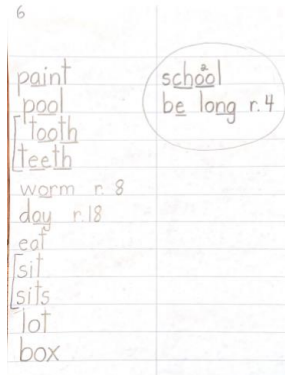 6
paint
pool
tooth
teeth
worm r. 8
day r. 18
eat
sit
sits
lot
box
school
2
be long r. 4